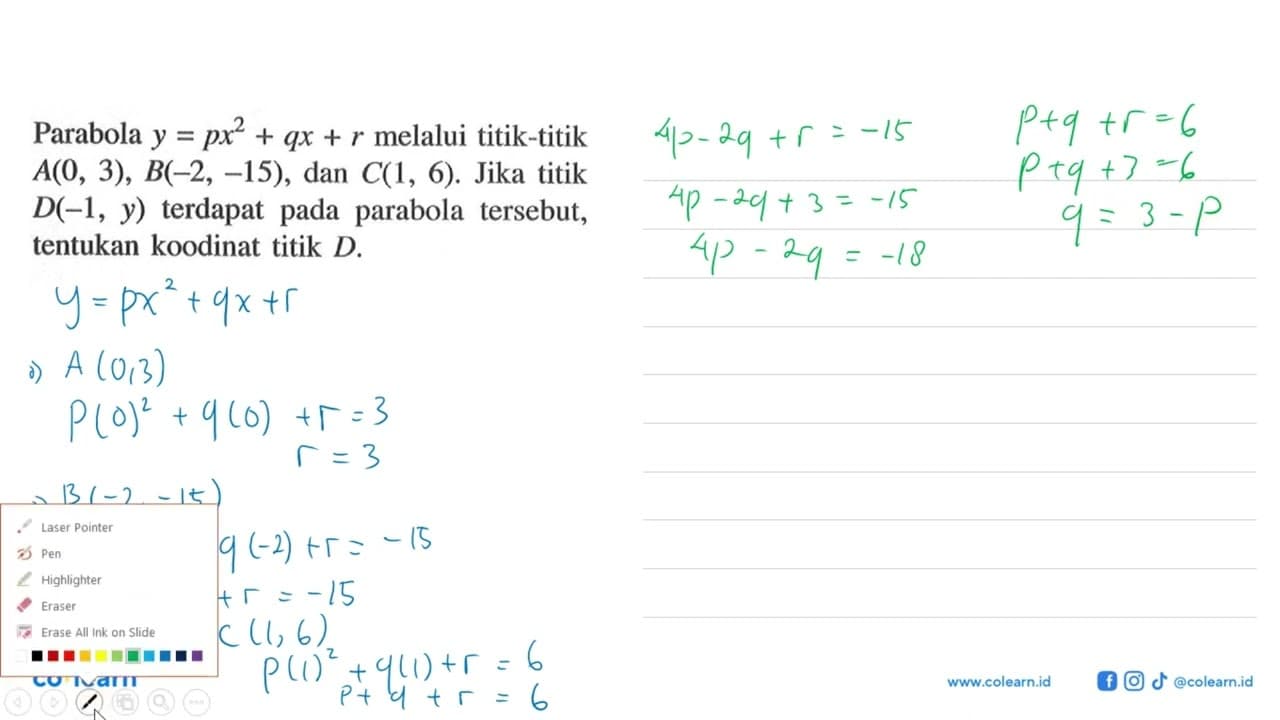 Parabola y = px² + qx + r melalui titik-titik
A(0, 3), B(–2, –15), dan C(1, 6). Jika titik
D(–1, y) terdapat pada parabola tersebut,
tentukan koodinat titik D.
y = px² + qx + r
A (0,3)
P(0)² + q(0) + r = 3
r = 3
B(-2, -15)
q(-2) + r = -15
+ r = -15
C (1, 6)
P(1)² + q(1) + r = 6
P + q + r = 6
4p - 2q + r = -15
4p - 2q + 3 = -15
4p - 2q = -18
P + q + r = 6
P + q + 3 = 6
q = 3 - P
Laser Pointer
Pen
Highlighter
Eraser
Erase All Ink on Slide
www.colearn.id
@colearn.id